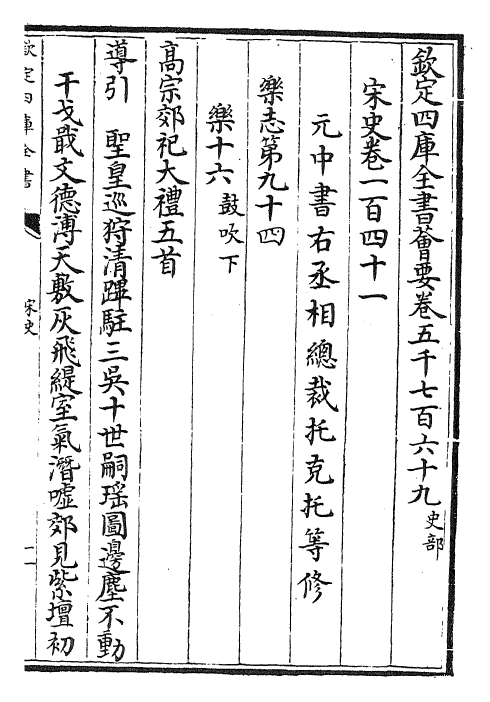 欽定四庫全書薈要卷五千七百六十九 史部
宋史卷一百四十一
元中書右丞相總裁托克托等修
樂志第九十四
樂十六 鼓吹下
高宗郊祀大禮五首
導引 聖皇巡狩清蹕駐三吳十世嗣瑤圖邊塵不動
干戈戢文德溥天敷灰飛緹室氣潛噓郊見紫壇初
欽定四庫全書
宋史